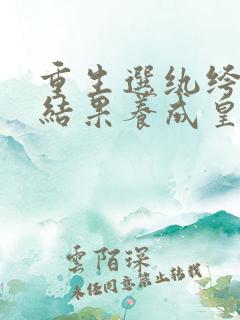 重生選纨绔
結果養成皇
雲陌琛
未任同意禁止转载